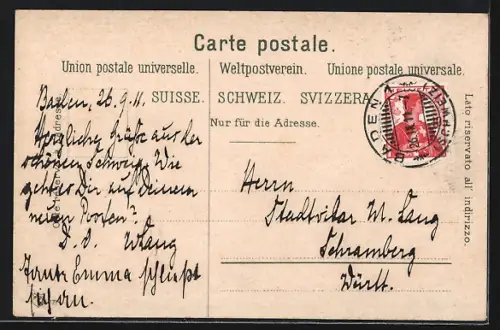 Carte postale.
Union postale universelle. Weltpostverein. Unione postale universale.
SUISSE. SCHWEIZ. SVIZZERA
Nur für die Adresse.
Lato riservato all' indirizzo.
BADEN 1
26.IX.11.
Baden, 26.9.11.
Herzliche Grüße aus der
schönen Schweiz. Wie
geht es Dir auf Deinem
neuen Posten?
D. O. WLang
Tante Emma schließt
sich an.
Herrn
Stadtvikar W. Lang
Schramberg
Württ.